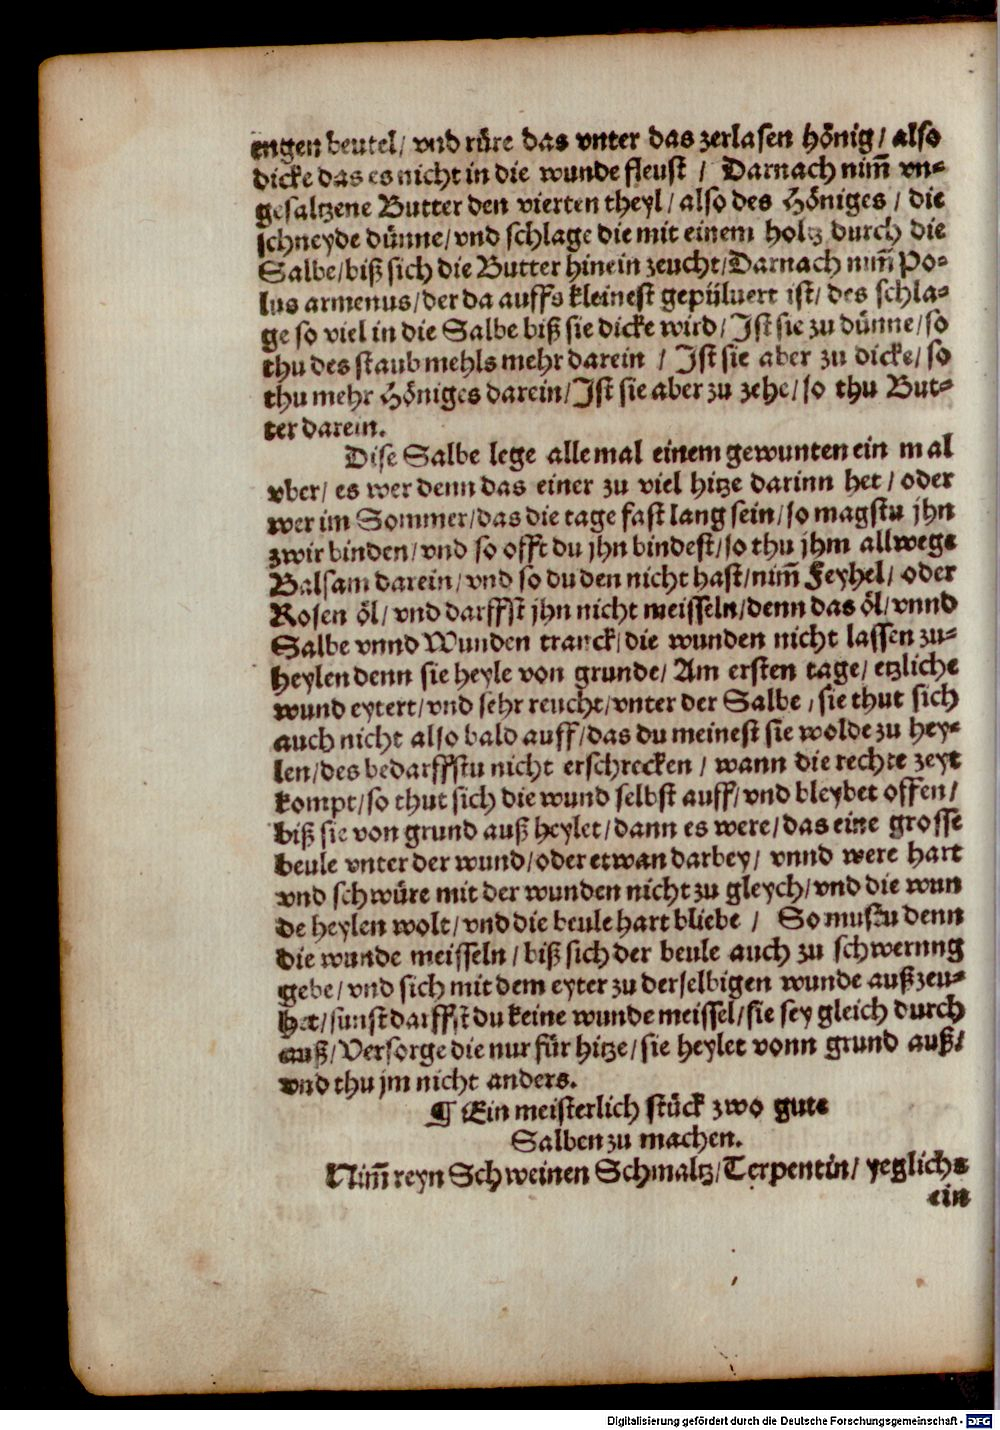 engen beutel/ vnd rüre das vnter das zerlasen hönig/ also
dicke das es nicht in die wunde fleust / Darnach nim̃ vn⸗
gesaltzene Butter den vierten theyl/ also des Höniges / die
schneyde dünne/ vnd schlage die mit einem holtz durch die
Salbe/ biß sich die Butter hinein zeucht/ Darnach nim̃ Po⸗
lus armenus/ der da auffs kleinest gepüluert ist/ des schla⸗
ge so viel in die Salbe biß sie dicke wird/ Ist sie zu dünne/ so
thu des staubmehls mehr darein / Ist sie aber zu dicke/ so
thu mehr Höniges darein/ Ist sie aber zu zehe/ so thu But⸗
ter darein.
Dise Salbe lege alle mal einem gewunten ein mal
vber/ es wer denn das einer zu viel hitze darinn het/ oder
wer im Sommer/ das die tage fast lang sein/ so magstu jhn
zwir binden/ vnd so offt du jhn bindest/ so thu jhm allwege
Balsam darein/ vnd so du den nicht hast/ nim̃ Feyhel/ oder
Rosen öl/ vnd darffst jhn nicht meisseln/ denn das öl/ vnnd
Salbe vnnd Wunden tranck/ die wunden nicht lassen zu⸗
heylen denn sie heyle von grunde/ Am ersten tage/ etzliche
wund eytert/ vnd sehr reucht/ vnter der Salbe / sie thut sich
auch nicht also bald auff/ das du meinest sie wolde zu hey⸗
len/ des bedarffstu nicht erschrecken / wann die rechte zeyt
kompt/ so thut sich die wund selbst auff/ vnd bleybet offen/
biß sie von grund auß heylet/ dann es were/ das eine grosse
beule vnter der wund/ oder etwan darbey/ vnnd were hart
vnd schwüre mit der wunden nicht zu gleych/ vnd die wun
de heylen wolt/ vnd die beule hart bliebe / So mustu denn
die wunde meisseln/ biß sich der beule auch zu schwerung
gebe/ vnd sich mit dem eyter zu derselbigen wunde auß zeu⸗
het/ sunst darffst du keine wunde meissel/ sie sey gleich durch
auß/ Versorge die nur für hitze/ sie heylet vonn grund auß/
vnd thu jm nicht anders.
¶ Ein meisterlich stück zwo gute
Salben zu machen.
Nim̃ reyn Schweinen Schmaltz/ Terpentin/ yeglichs
ein
Digitalisierung gefördert durch die Deutsche Forschungsgemeinschaft - DFG